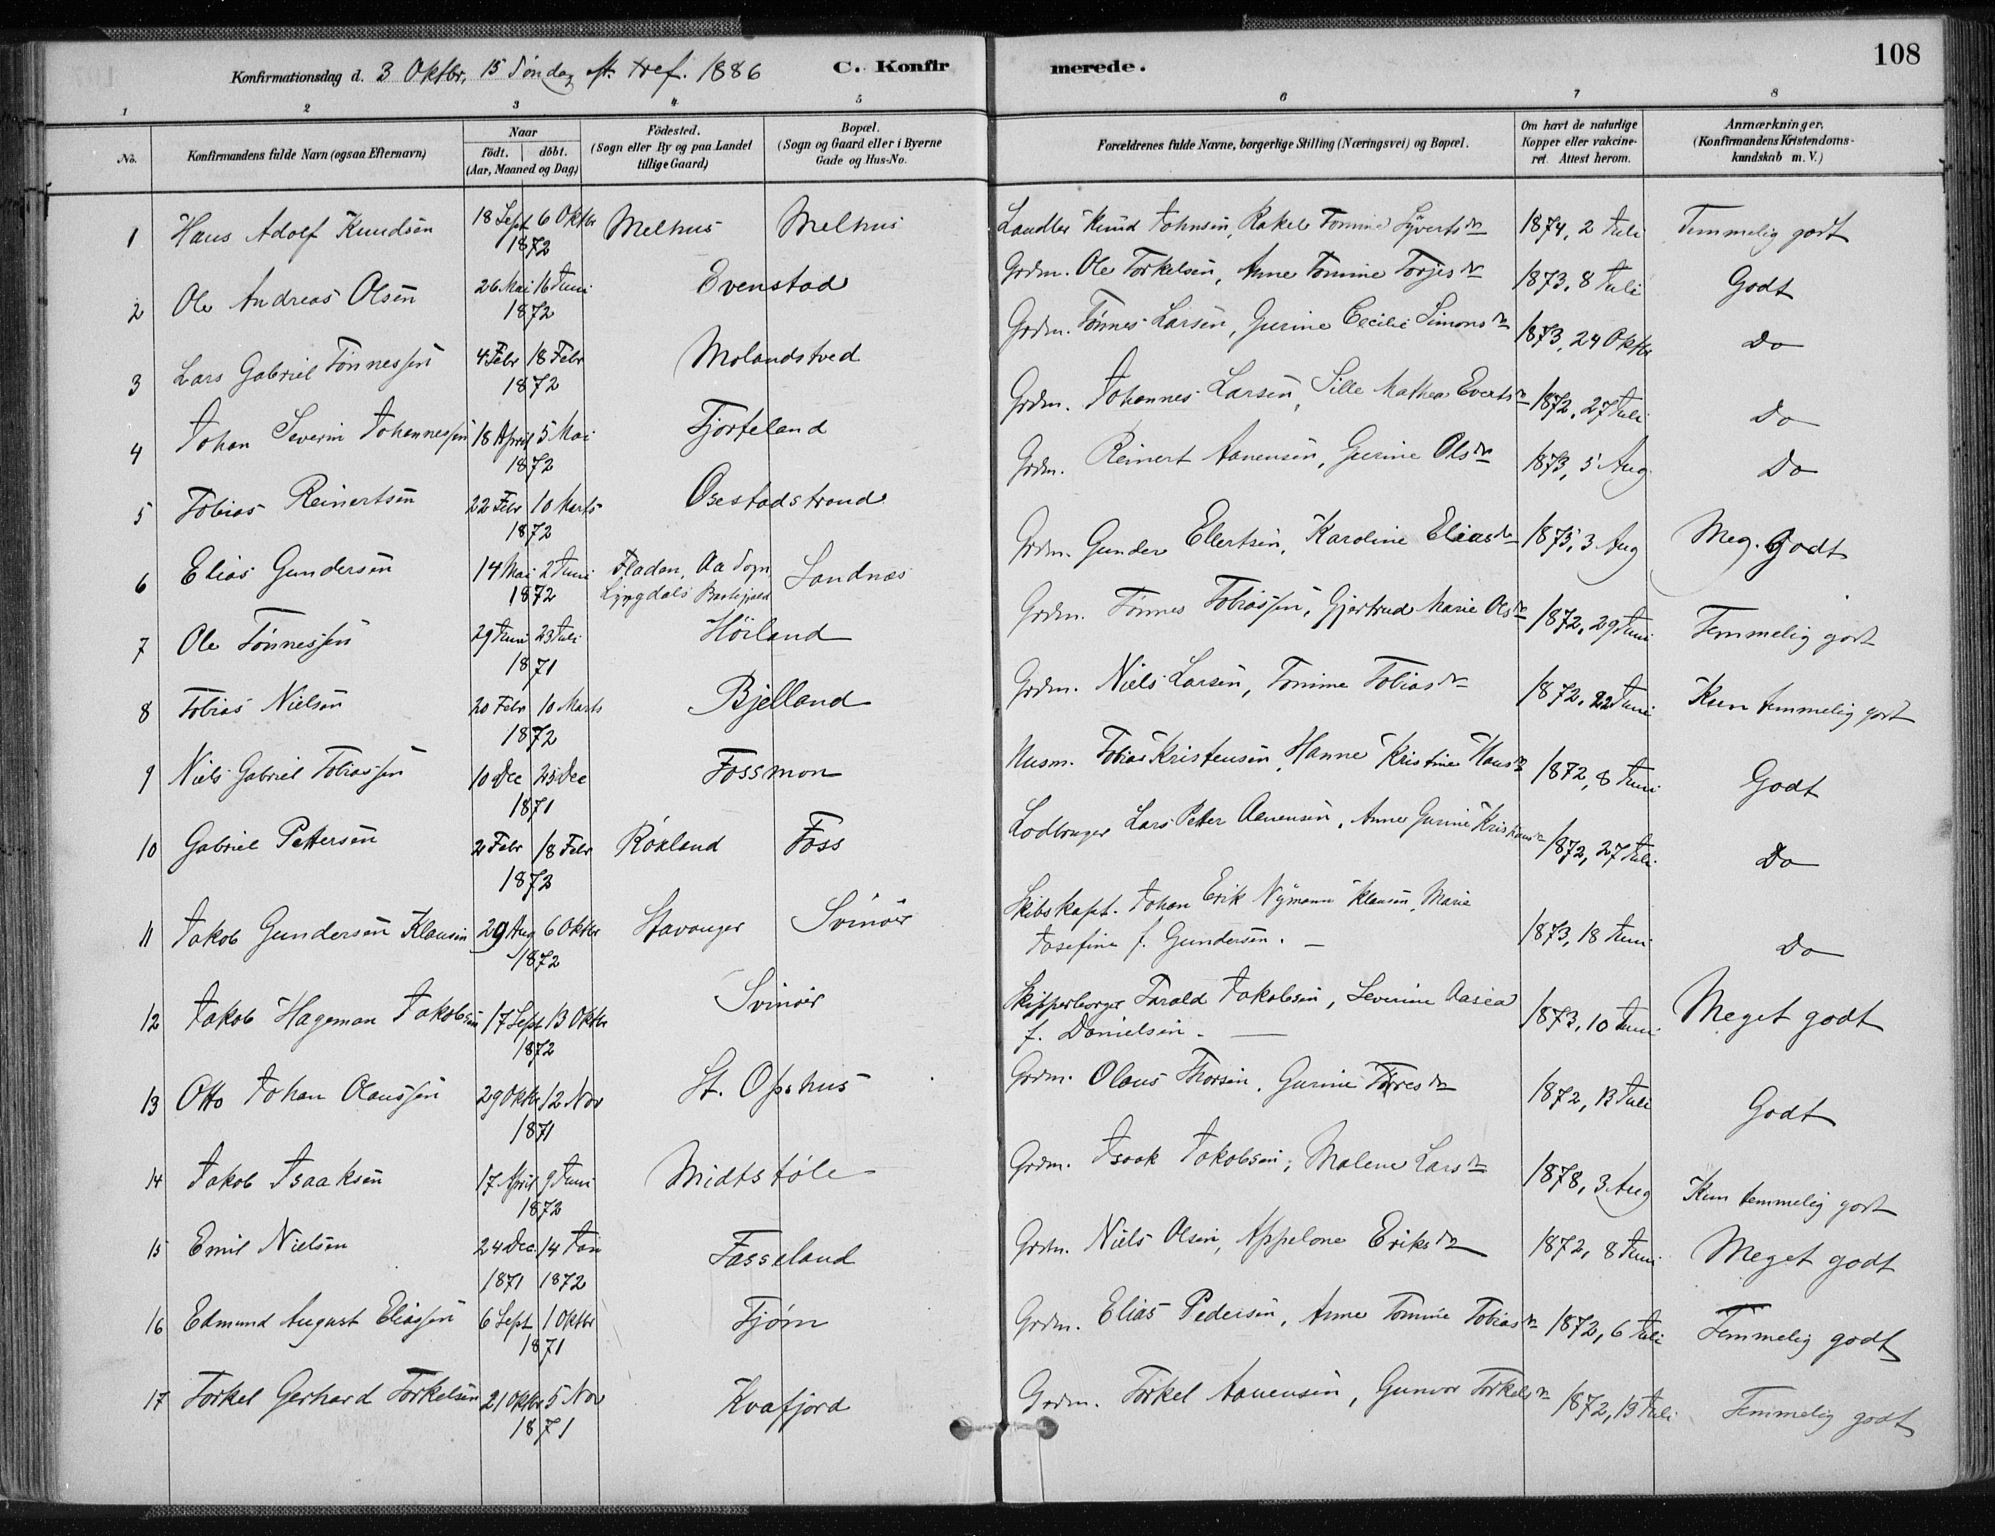 108
Konfirmationsdag d. 3 Oktbr, 15 Søndag eft. tref. 1886 C. Konfirmerede.
1 2 3 4 5 6 7 8
No. Konfirmandens fulde Navn (ogsaa Efternavn) Naar födt. döbt. (Aar, Maaned og Dag) Födested. (Sogn eller By og paa Landet tillige Gaard) Bopæl. (Sogn og Gaard eller i Byerne Gade og Hus-No. Forældrenes fulde Navne, borgerlige Stilling (Næringsvei) og Bopæl. Om havt de naturlige Kopper eller vakcineret. Attest herom. Anmærkninger. (Konfirmandens Kristendomskundskab m. V.)
1 Hans Adolf Knudsen 18 Sept 6 Oktbr 1872 Melhus Melhus Knud Johnsen, Rakel Tomine Syverts dr 1874, 2 Juli Temmelig godt
2 Ole Andreas Olsen 26 Mai 16 Juni 1872 Evenstad Grdm. Ole Torkelsen, Anne Tomine Torjes dr 1873, 8 Juli Godt
3 Lars Gabriel Tønnessen 4 Febr 18 Febr 1872 Molandstved Grdm. Tønnes Larsen, Gurine Cecilie Simons dr 1873, 24 Oktbr Do
4 Johan Severin Johannessen 18 April 5 Mai 1872 Fjorteland Grdm. Johannes Larsen, Sille Mathea Everts dr 1872, 27 Juli Do
5 Tobias Reinertsen 22 Febr 10 Marts 1872 Osestadstrand Grdm. Reinert Aanensen, Gurine Ols dr 1873, 5 Aug Do
6 Elias Gundersen 14 Mai 2 Juni 1872 Fladan, Aa Sogn, Lyngdals Prestegjæld Sandnæs Grdm. Gunder Ellertsen, Karoline Elias dr 1875, 3 Aug Meg. Godt
7 Ole Tønnessen 29 Juni 23 Juli 1871 Høiland Grdm. Tønnes Tobiassen, Gjertrud Marie Ols dr 1872, 29 Juni Temmelig godt
8 Tobias Nielsen 20 Febr 10 Marts 1872 Bjelland Grdm. Niels Larsen, Tomine Tobias dr 1872, 22 Juni Kun temmelig godt
9 Niels Gabriel Tobiassen 10 Dec 25 Dec 1871 Fossmon Husm. Tobias Kristensen, Hanne Kristine Hans dr 1872, 8 Juni Godt
10 Gabriel Pettersen 2 Febr 18 Febr 1872 Røiland Foss Lodbruger Lars Petter Aanensen, Anne Gurine Kristians dr 1872, 27 Juli Do
11 Jakob Gundersen Klausen 29 Aug 6 Oktbr 1872 Stavanger Svinøer Skibskapt. Johan Erik Nymann Klausen, Marie
Josefine f. Gundersen. — 1873, 18 Juni Do
12 Jakob Hageman Jakobsen 17 Sept 13 Oktbr 1872 Svinøer Skipperborger Tarald Jakobsen, Severine Aasea
f. Danielsen. — 1873, 10 Juni Meget godt
13 Otto Johan Olaussen 29 Oktbr 12 Nov 1871 St. Opshus Grdm. Olaus Thorsen, Gurine Torres dr 1872, 13 Juli Godt
14 Jakob Isaaksen 17 April 9 Juni 1872 Midtstøle Grdm. Isaak Jakobsen, Malene Lars dr 1878, 3 Aug Kun temmelig godt
15 Emil Nielsen 24 Dec. 1871 14 Jan 1872 Fasseland Grdm. Niels Olsen, Appelone Eriks dr 1872, 8 Juni Meget godt
16 Edmund August Eliassen 6 Sept 1 Oktbr 1871 Tjøm Grdm. Elias Pedersen, Anne Tomine Tobias dr 1872, 6 Juli Temmelig godt
17 Torkel Gerhard Torkelsen 21 Oktbr 5 Nov 1871 Kvafjord Grdm. Torkel Aanensen, Gunvor Torkels dr 1872, 13 Juli Temmelig godt